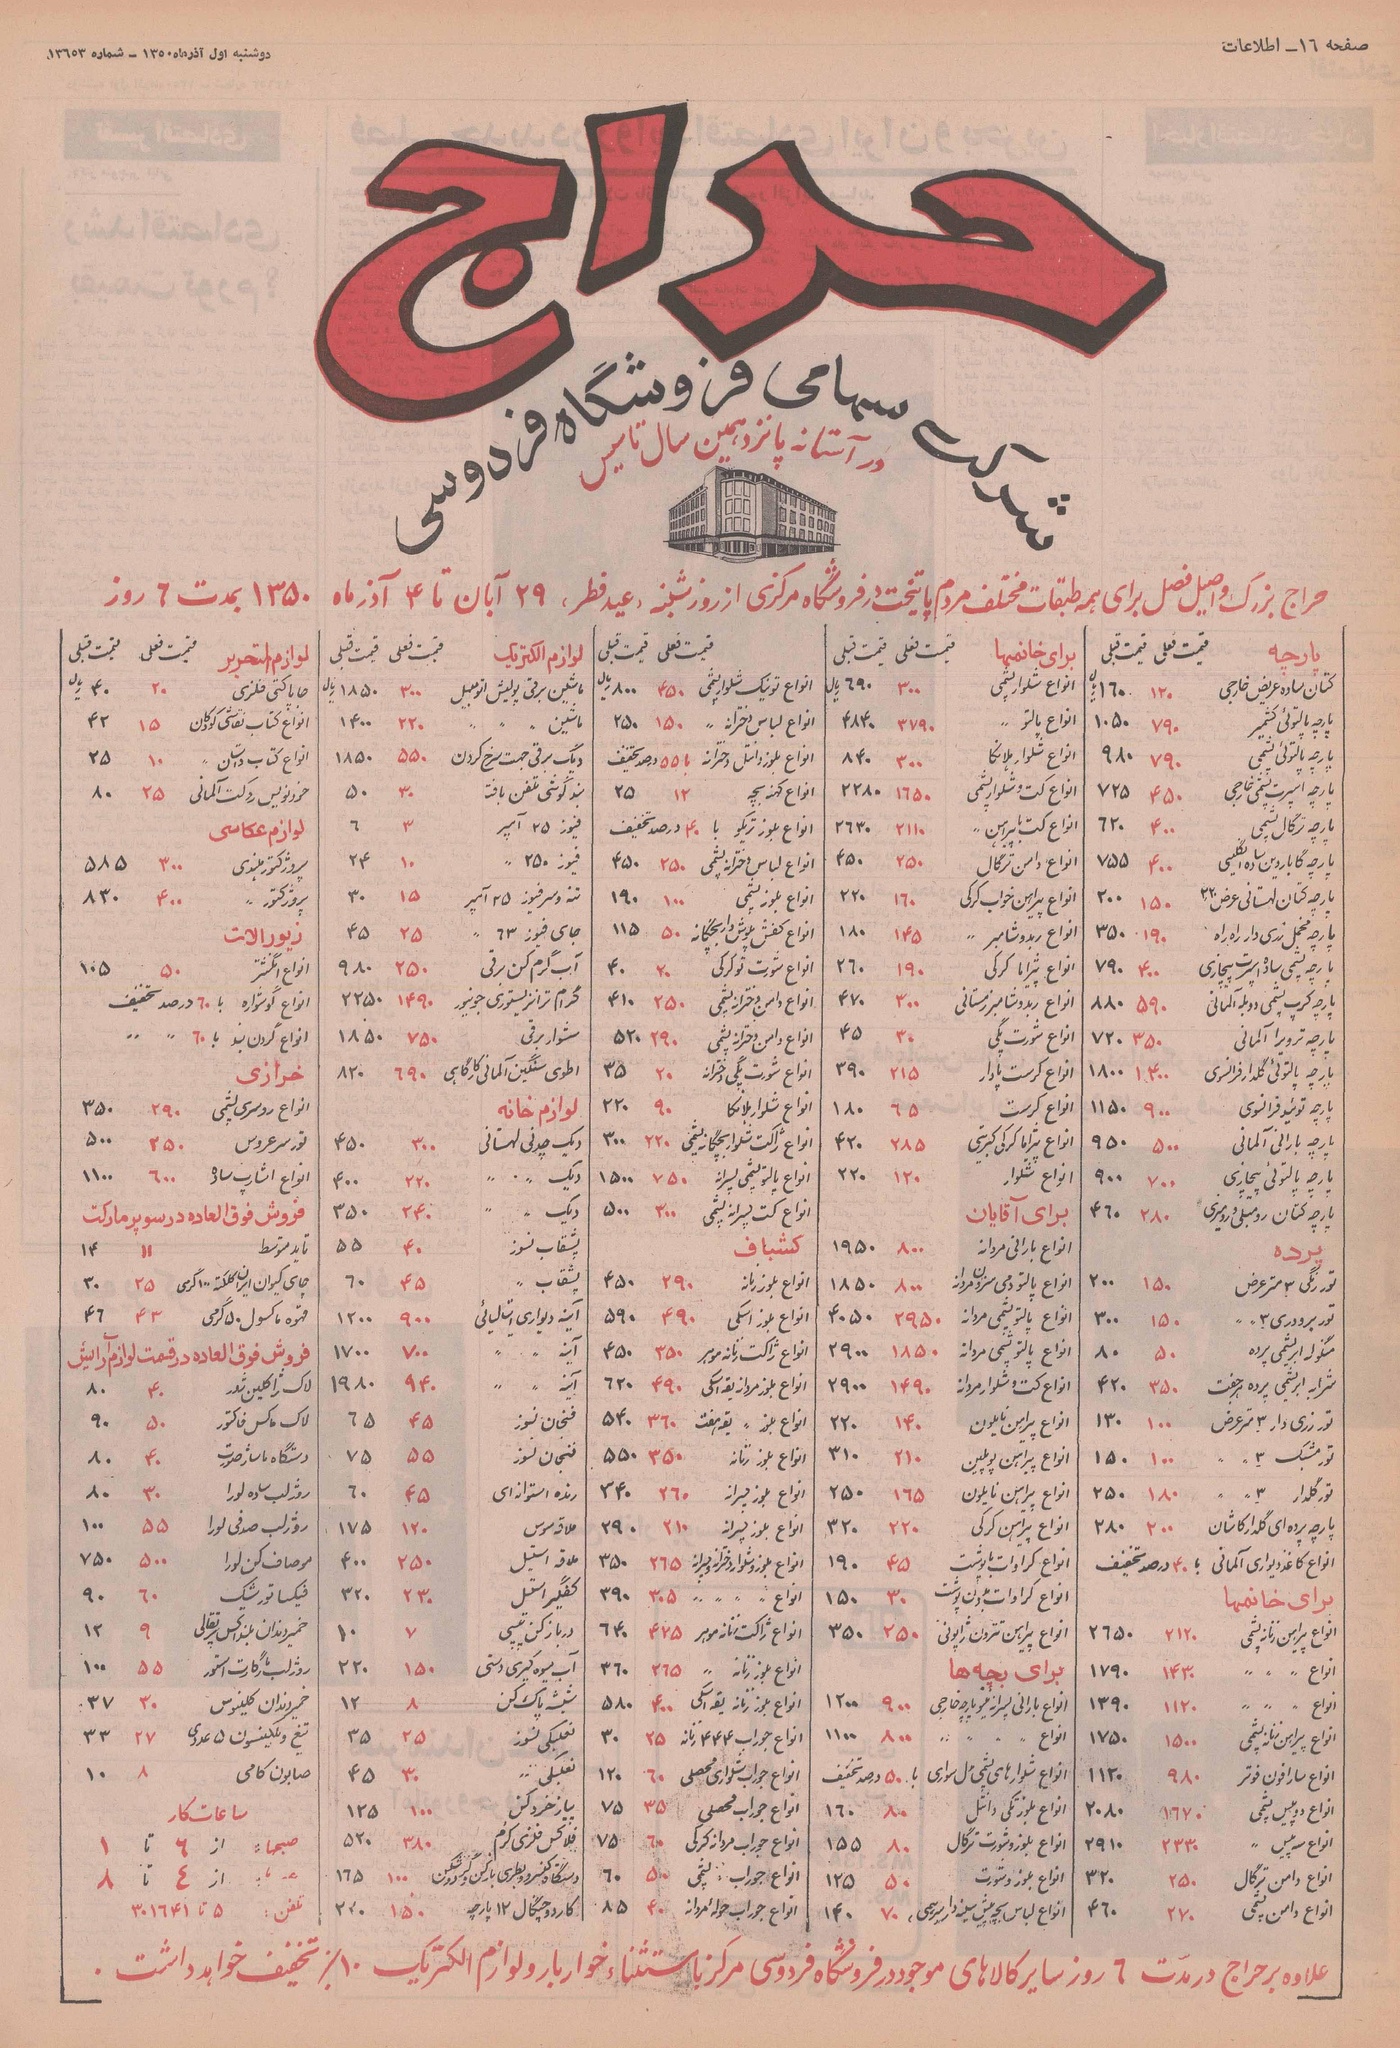 صفحه ۱۶ـ اطلاعات
دوشنبه اول آذرماه ۱۳۵۰ ـ شماره ۱۳۶۵۳
حراج
شرکت سهامی فروشگاه فردوسی
در آستانه پانزدهمین سال تاسیس
حراج بزرگ و اصیل فصل برای همه طبقات مختلف مردم پایتخت در فروشگاه مرکزی از روز شنبه «عید فطر» ۲۹ آبان تا ۴ آذرماه ۱۳۵۰ بمدت ۶ روز
پارچه قیمت فعلی قیمت قبلی
کتان ساده عریض خارجی ۱۲۰ ۱۶۰ ریال
پارچه پالتوئی کشمیر ۷۹۰ ۱۰۵۰
پارچه پالتوئی پشمی ۷۹۰ ۹۸۰
پارچه اسپرت پشمی خارجی ۴۵۰ ۷۲۵
پارچه ترگال پشمی ۴۰۰ ۶۲۰
پارچه گاباردین ساده انگلیسی ۴۰۰ ۷۵۵
پارچه کتان لهستانی عرض ۲۲۰ ۱۵۰ ۲۰۰
پارچه مخمل زری دار راه راه ۱۹۰ ۳۵۰
پارچه پشمی ساده اسپرت پیچازی ۴۰۰ ۷۹۰
پارچه کرپ پشمی دوبله آلمانی ۵۹۰ ۸۸۰
پارچه ترویرا آلمانی ۳۵۰ ۷۲۰
پارچه پالتوئی گلدار فرانسوی ۱۳۰۰ ۱۸۰۰
پارچه توئید فرانسوی ۹۰۰ ۱۱۵۰
پارچه بارانی آلمانی ۵۰۰ ۹۵۰
پارچه پالتوئی پیچازی ۷۰۰ ۹۰۰
پارچه کتان رومبلی و رومیزی ۲۸۰ ۴۶۰
پرده
تور رنگی ۳ متر عرض ۱۵۰ ۲۰۰
تور برودری ۳ " " ۱۵۰ ۳۰۰
منگوله ابریشمی پرده ۵۰ ۸۰
شرابه ابریشمی پرده هر جفت ۳۵۰ ۴۲۰
تور زری دار ۳ متر عرض ۱۰۰ ۱۳۰
تور مشبک ۳ " " ۱۰۰ ۱۵۰
تور گلدار ۳ " " ۱۸۰ ۲۵۰
پارچه پرده ای گلدار کاشان ۲۰۰ ۲۸۰
انواع کاغذ دیواری آلمانی با ۴۰ درصد تخفیف
برای خانمها
انواع پیراهن زنانه پشمی ۲۱۲۰ ۲۶۵۰
انواع " " " ۱۴۳۰ ۱۷۹۰
انواع " " " ۱۱۲۰ ۱۳۹۰
انواع پیراهن زنانه پشمی ۱۵۰۰ ۱۷۵۰
انواع سارافون فوتر ۹۸۰ ۱۱۲۰
انواع دوپیس پشمی ۱۶۷۰ ۲۰۸۰
انواع سه پیس " ۲۳۳۰ ۲۹۱۰
انواع دامن ترگال ۲۵۰ ۳۲۰
انواع دامن پشمی ۲۷۰ ۴۶۰
برای خانمها قیمت فعلی قیمت قبلی
انواع شلوار پشمی ۳۰۰ ۶۹۰ ریال
انواع پالتو " ۳۷۹۰ ۴۸۴۰
انواع شلوار هلانکا ۳۰۰ ۸۴۰
انواع کت و شلوار پشمی ۱۶۵۰ ۲۲۸۰
انواع کت با پیراهن " ۲۱۱۰ ۲۶۳۰
انواع دامن ترگال ۲۵۰ ۴۵۰
انواع پیراهن خواب کرکی ۱۶۰ ۲۲۰
انواع ربدوشامبر " ۱۴۵ ۱۸۰
انواع پیژاما کرکی ۱۹۰ ۲۶۰
انواع ربدوشامبر زمستانی ۳۰۰ ۴۷۰
انواع شورت پنکی ۳۰ ۴۵
انواع کرست پادار ۲۱۵ ۳۹۰
انواع کرست ۶۵ ۱۸۰
انواع پیژاما کرکی کبریتی ۲۸۵ ۴۲۰
انواع شلوار ۱۲۰ ۲۲۰
برای آقایان
انواع بارانی مردانه ۸۰۰ ۱۹۵۰
انواع پالتو دمی سزون مردانه ۸۰۰ ۱۸۵۰
انواع پالتو پشمی مردانه ۲۹۵۰ ۴۰۵۰
انواع پالتو پشمی مردانه ۱۸۵۰ ۲۹۰۰
انواع کت و شلوار مردانه ۱۴۹۰ ۲۹۰۰
انواع پیراهن نایلون ۱۴۰ ۲۲۰
انواع پیراهن پوپلین ۲۱۰ ۳۱۰
انواع پیراهن نایلون ۱۶۵ ۲۵۰
انواع پیراهن کرکی ۲۲۰ ۳۲۰
انواع کراوات با پوشت ۴۵ ۱۹۰
انواع کراوات بدون پوشت ۳۰ ۱۵۰
انواع پیراهن تترون ژاپونی ۲۵۰ ۳۵۰
برای بچه ها
انواع بارانی پسرانه با پارچه خارجی ۹۰۰ ۱۲۰۰
انواع " " " " ۸۰۰ ۱۱۰۰
انواع شلوارهای پشمی مدل سواری با ۵۰ درصد تخفیف
انواع بلوز نکی دانتل ۸۰ ۱۶۰
انواع بلوز و شورت ترگال ۸۰ ۱۵۵
انواع بلوز و شورت ۵۰ ۱۲۵
انواع لباس بچه پیش سینه دار پیرسی ۷۰ ۱۴۰
قیمت فعلی قیمت قبلی
انواع تونیک شلوار پشمی ۴۵۰ ۸۰۰ ریال
انواع لباس دخترانه " ۱۵۰ ۲۵۰
انواع بلوز دانتل دخترانه با ۵۵ درصد تخفیف
انواع کهنه بچه ۱۲ ۲۵
انواع بلوز تریکو با ۴۰ درصد تخفیف
انواع لباس دخترانه پشمی ۲۵۰ ۴۵۰
انواع بلوز پشمی ۱۰۰ ۱۹۰
انواع کفش پلوش دار بچگانه ۵۰ ۱۱۵
انواع شورت توکرکی ۲۰ ۴۰
انواع دامن دخترانه پشمی ۲۵۰ ۴۱۰
انواع دامن دخترانه پشمی ۲۹۰ ۵۲۰
انواع شورت پنکی دخترانه ۲۰ ۳۵
انواع شلوار هلانکا ۹۰ ۲۲۰
انواع ژاکت شلوار بچگانه پشمی ۲۲۰ ۳۰۰
انواع پالتو پشمی پسرانه ۷۵۰ ۱۵۰۰
انواع کت پسرانه پشمی ۳۰۰ ۵۰۰
کشباف
انواع بلوز زنانه ۲۹۰ ۴۵۰
انواع بلوز اسکی ۴۹۰ ۵۹۰
انواع ژاکت زنانه موهر ۳۵۰ ۴۵۰
انواع بلوز مردانه یقه اسکی ۴۹۰ ۶۲۰
انواع بلوز " یقه هفت ۳۶۰ ۵۴۰
انواع بلوز زنانه ۳۵۰ ۵۵۰
انواع بلوز پسرانه ۲۶۰ ۳۴۰
انواع بلوز پسرانه ۲۱۰ ۲۹۰
انواع بلوز و شلوار دخترانه و پسرانه ۲۶۵ ۳۵۰
انواع " " " " ۳۰۵ ۳۹۰
انواع ژاکت زنانه موهر ۴۲۵ ۶۴۰
انواع بلوز زنانه " ۲۶۵ ۳۶۰
انواع بلوز زنانه یقه اسکی ۴۰۰ ۵۸۰
انواع جوراب ۴۴۴ زنانه ۲۵ ۳۰
انواع جوراب شلواری محصلی ۶۰ ۱۲۰
انواع جوراب محصلی ۳۵ ۷۵
انواع جوراب مردانه کرکی ۶۰ ۷۵
انواع جوراب پشمی ۵۰ ۶۰
انواع جوراب حوله مردانه ۴۰ ۸۵
لوازم الکتریک قیمت فعلی قیمت قبلی
ماشین برقی پولیش اتومبیل ۳۰۰ ۱۸۵۰ ریال
ماشین " " " ۲۲۰ ۱۴۰۰
دیگ برقی جهت سرخ کردن ۵۵۰ ۱۸۵۰
بند گوشی تلفن بافته ۳۰ ۵۰
فیوز ۲۵ آمپر ۳ ۶
فیوز ۲۵۰ " ۱۰ ۲۴
تنه و سر فیوز ۲۵ آمپر ۱۵ ۳۰
جای فیوز ۶۳ " ۲۵ ۴۵
آب گرم کن برقی ۲۵۰ ۹۸۰
گرام ترانزیستوری جونیور ۱۴۹۰ ۲۲۵۰
سشوار برقی ۷۵۰ ۱۸۵۰
اطوی سنگین آلمانی کارگاهی ۶۹۰ ۸۲۰
لوازم خانه
دیگ چدنی لهستانی ۳۰۰ ۴۵۰
دیگ " " ۲۲۰ ۴۰۰
دیگ " " ۲۴۰ ۳۵۰
بشقاب نسوز ۴۰ ۵۵
بشقاب " ۴۵ ۶۰
آینه دیواری ایتالیائی ۹۰۰ ۱۲۰۰
آینه " " ۷۰۰ ۱۷۰۰
آینه " " ۹۴۰ ۱۹۸۰
فنجان نسوز ۴۵ ۶۵
فنجان نسوز ۵۵ ۷۵
رنده استوانه ای ۴۵ ۶۰
ملاقه موس ۱۲۰ ۱۷۵
ملاقه استیل ۲۵۰ ۴۰۰
کفگیر استیل ۲۳۰ ۳۲۰
در بازکن تیپسی ۷ ۱۰
آب میوه گیری دستی ۱۵۰ ۲۲۰
شیشه پاک کن ۸ ۱۲
نعلبکی نسوز ۲۵ ۳۵
نعلبکی " ۳۰ ۴۵
پیاز خرد کن ۱۰۰ ۱۲۵
فلاکس فلزی کرم ۳۸۰ ۵۲۰
دستگاه کنسرو و بطری بازکن و گردو شکن ۱۰۰ ۱۶۵
کارد و چنگال ۱۲ پارچه ۱۵۰ ۲۲۰
لوازم التحریر قیمت فعلی قیمت قبلی
جا پاکتی فلزی ۲۰ ۴۰ ریال
انواع کتاب نقاشی کودکان ۱۵ ۴۲
انواع کتاب داستان " ۱۰ ۲۵
خودنویس روکت آلمانی ۲۵ ۸۰
لوازم عکاسی
پروژکتور بلندی ۳۰۰ ۵۸۵
پروژکتور " ۴۰۰ ۸۳۰
زیورالات
انواع انگشتر ۵۰ ۱۰۵
انواع گوشواره با ۶۰ درصد تخفیف
انواع گردن بند با ۶۰ " "
خرازی
انواع روسری پشمی ۲۹۰ ۳۵۰
تور سر عروس ۲۵۰ ۵۰۰
انواع اشارپ ساده ۶۰۰ ۱۱۰۰
فروش فوق العاده در سوپر مارکت
تاید متوسط ۱۱ ۱۴
چای کیوان ایران کلکته ۱۰۰ گرمی ۲۵ ۳۰
قهوه ماکسول ۵۰ گرمی ۴۳ ۴۶
فروش فوق العاده در قیمت لوازم آرایش
لاک ژاکلین کدر ۴۰ ۸۰
لاک ماکس فاکتور ۵۰ ۹۰
دستگاه ماساژ صورت ۴۰ ۸۰
روژ لب ساده لورا ۳۰ ۸۰
روژ لب صدفی لورا ۵۵ ۱۰۰
مو صاف کن لورا ۵۰۰ ۷۵۰
فیکساتور شیک ۶۰ ۹۰
خمیر دندان بلندا کس پرتقالی ۹ ۱۲
روژ لب مارگارت استور ۵۵ ۱۰۰
خمیر دندان کلینوس ۳۰ ۳۷
تیغ ویلکینسون ۵ عددی ۲۷ ۳۳
صابون کامی ۸ ۱۰
ساعات کار
صبحها: از ۶ تا ۱
عصرها: از ٤ تا ۸
تلفن: ۵ تا ۳۰۱۶۴۱
علاوه بر حراج در مدت ۶ روز سایر کالاهای موجود در فروشگاه فردوسی مرکز باستثناء خواربار و لوازم الکتریک ۱۰٪ تخفیف خواهد داشت.